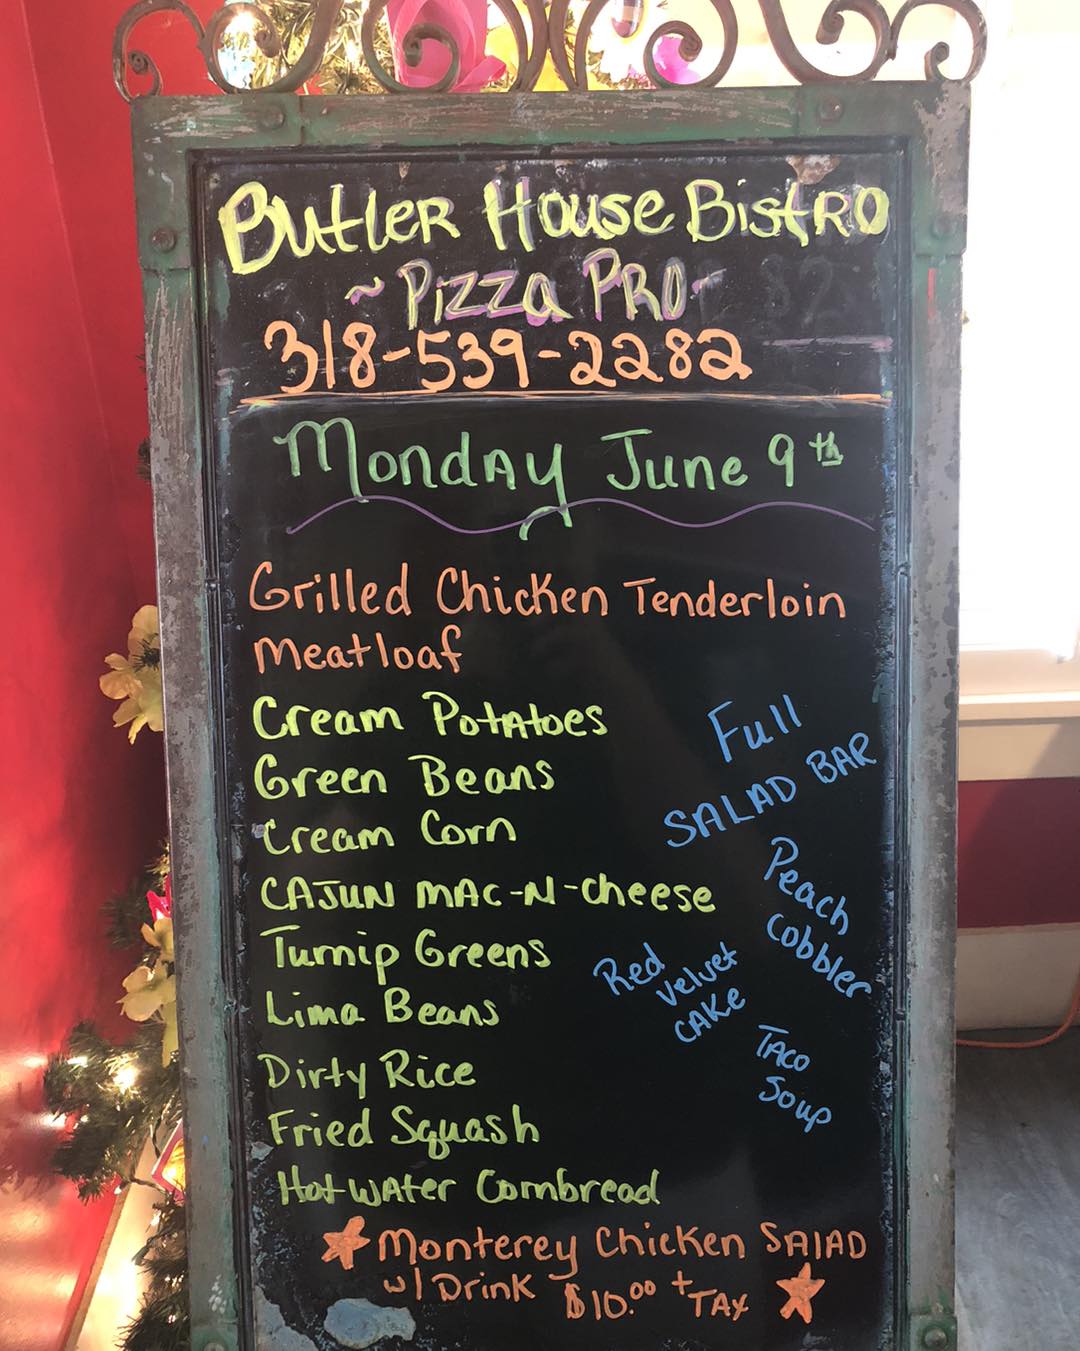 Butler House Bistro
~ Pizza Pro ~
318-539-2282
Monday June 9th
Grilled Chicken Tenderloin
Meatloaf
Cream Potatoes
Green Beans
Cream Corn
CAJUN MAC-N-cheese
Turnip Greens
Lima Beans
Dirty Rice
Fried Squash
Hot Water Cornbread
Full
SALAD BAR
Peach
Cobbler
Red
Velvet
CAKe
TACO
Soup
Monterey Chicken SAlAD
w/ Drink $10.00 + TAX